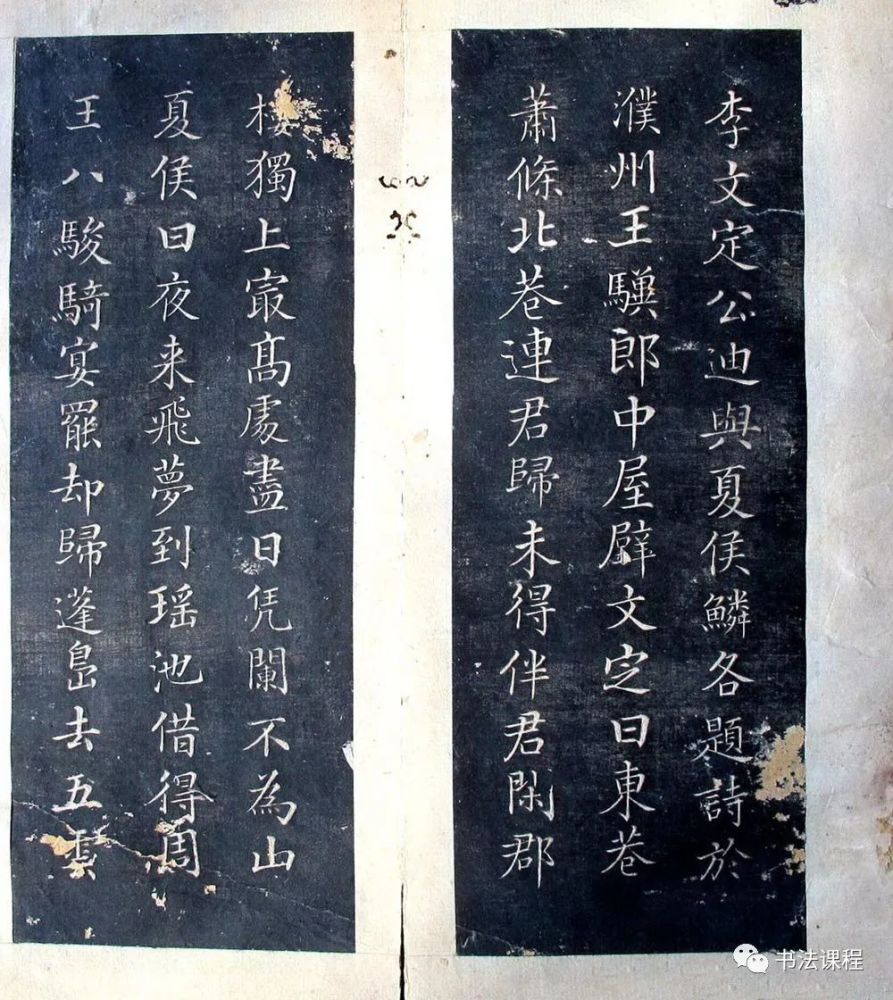 李文定公迪與夏侯鱗各題詩於
濮州王驥郎中屋壁文定曰東巷
蕭條北巷連君歸未得伴君閑郡
樓獨上㝡髙處盡日凭闌不為山
夏侯曰夜来飛夢到瑶池借得周
王八駿騎宴罷却歸蓬島去五雲
书法课程